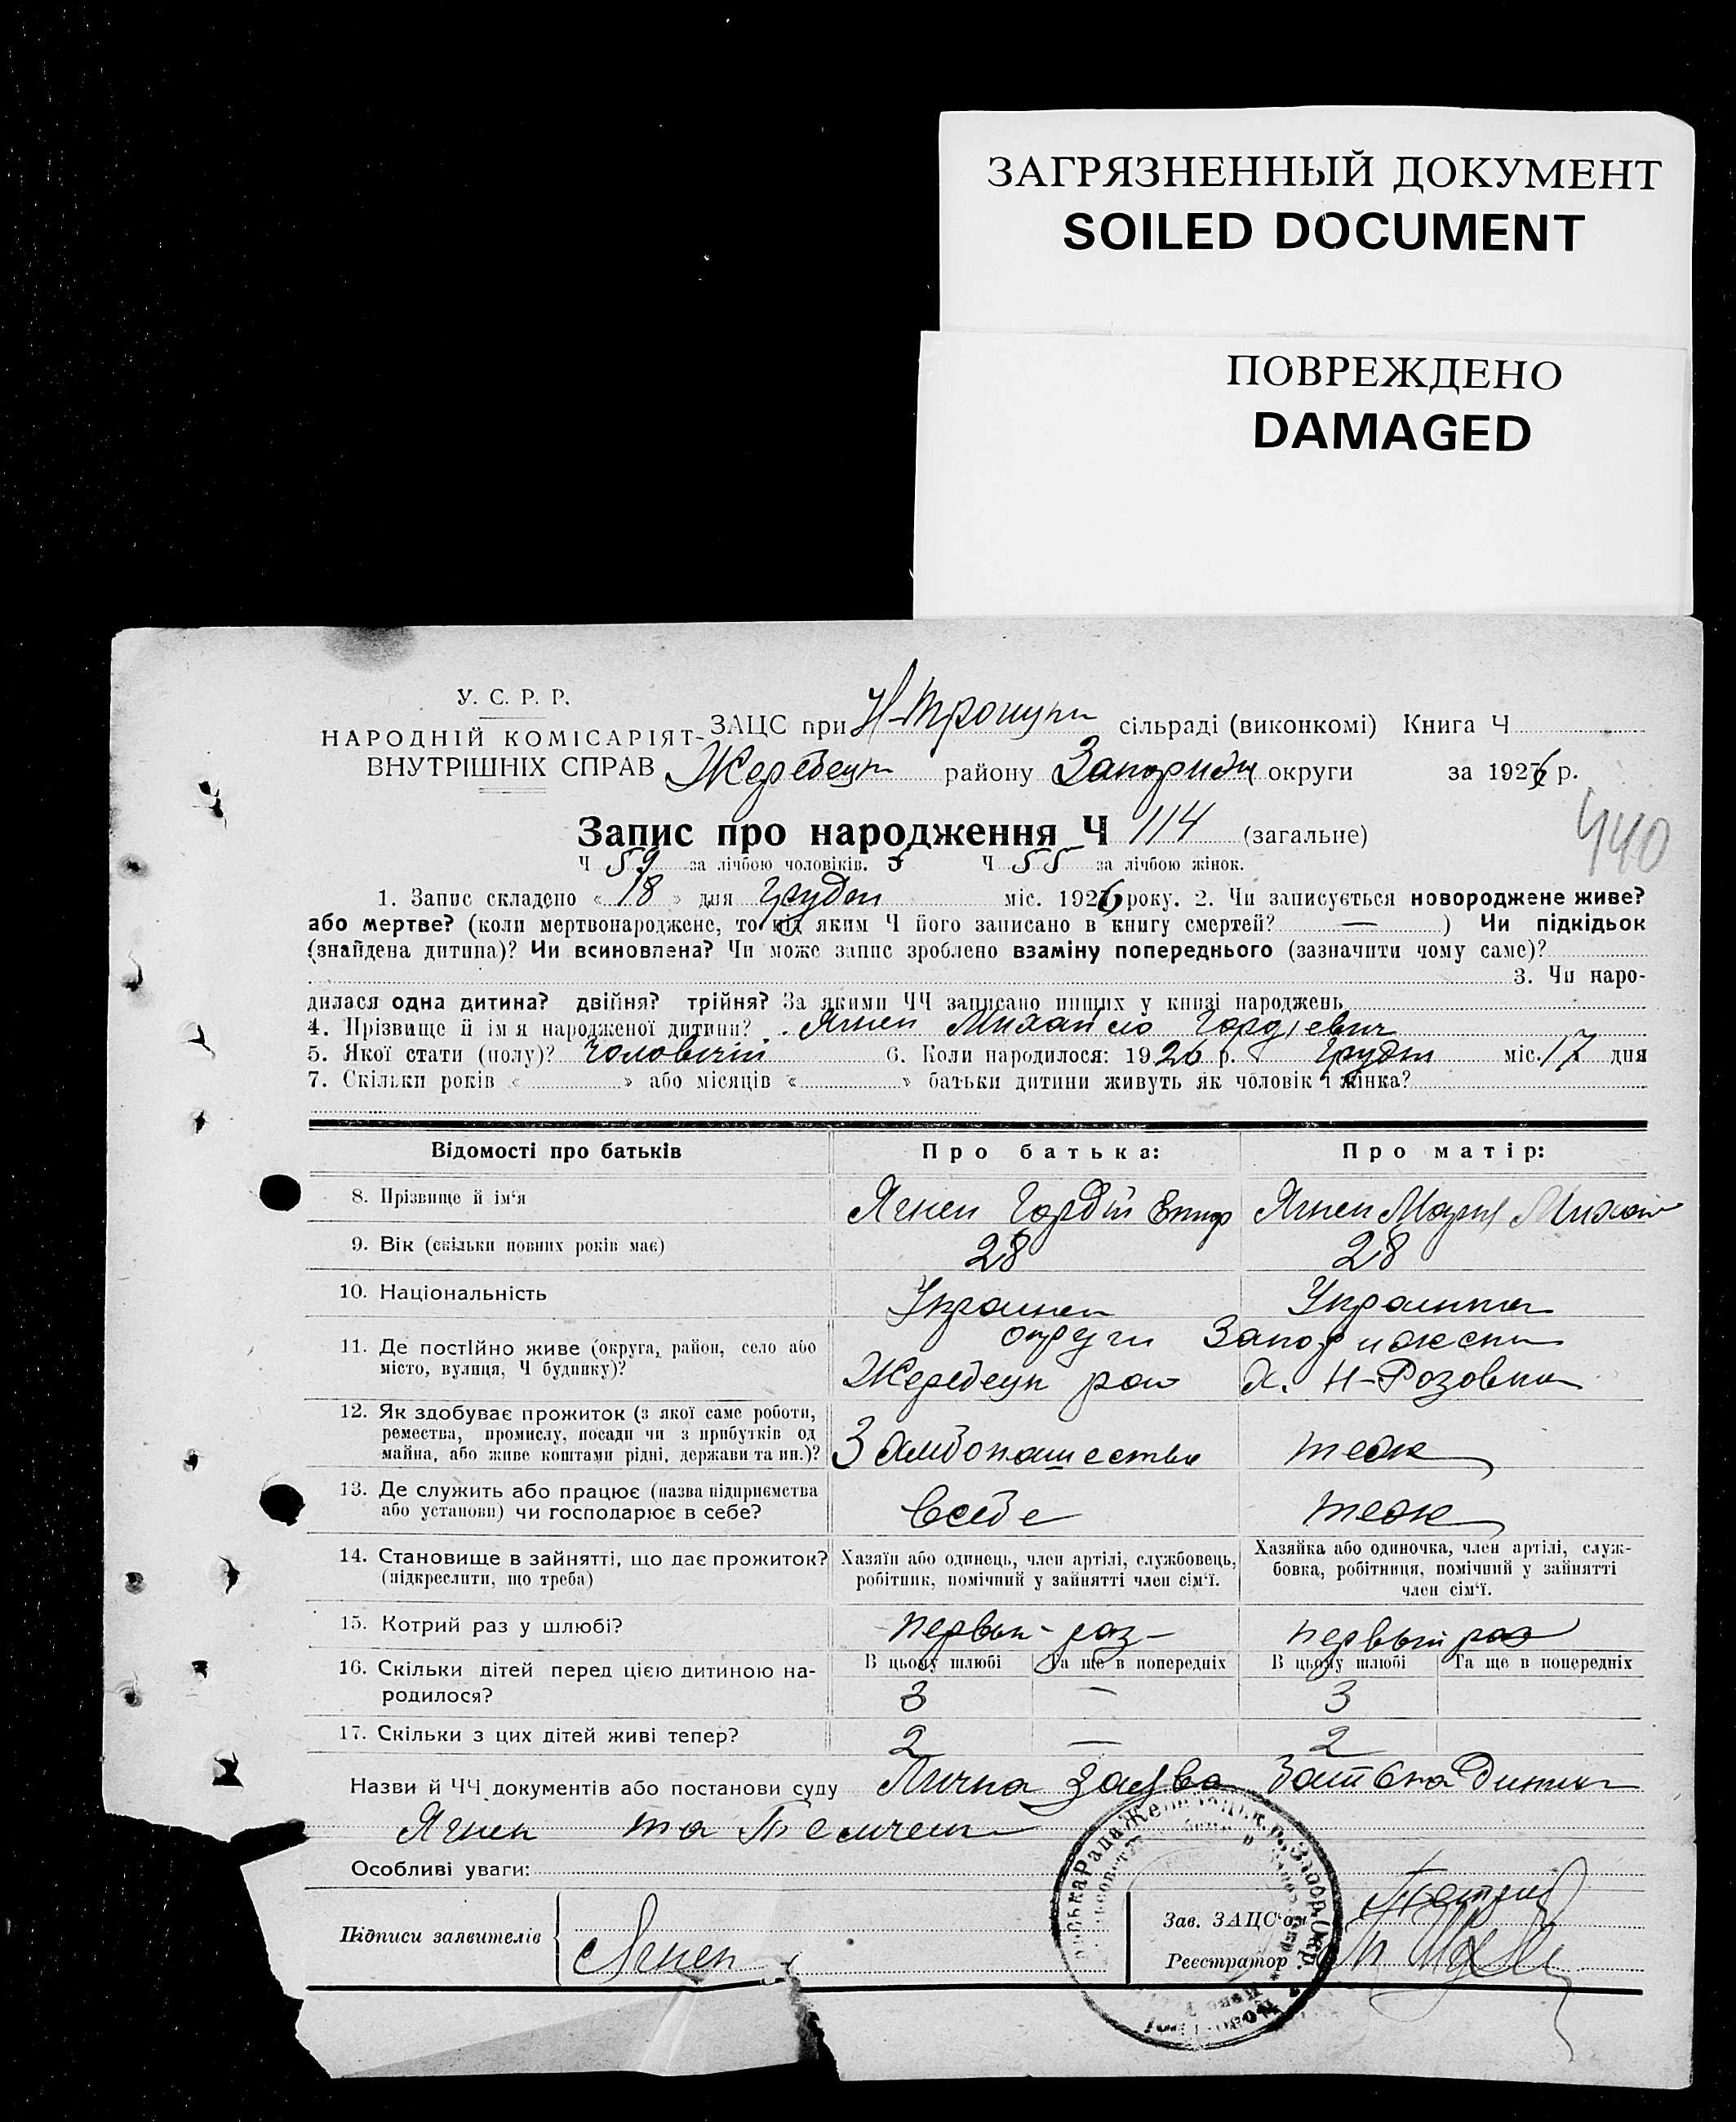 ЗАГРЯЗНЕННЫЙ ДОКУМЕНТ
SOILED DOCUMENT
ПОВРЕЖДЕНО
DAMAGED
У. С. Р. Р.
НАРОДНІЙ КОМІСАРІЯТ
ВНУТРІШНІХ СПРАВ
ЗАЦС при Н-Троицьк сільраді (виконкомі) Книга Ч
Жеребецьк району Запориж округи за 1926 р.
440
Запис про народження Ч 114 (загальне)
Ч 59 за лічбою чоловіків. Ч 55 за лічбою жінок.
1. Запис складено « 18 » дня Грудня міс. 1926 року. 2. Чи записується новороджене живе?
або мертве? (коли мертвонароджене, то під яким Ч його записано в книгу смертей? — ) Чи підкідьок
(знайдена дитина)? Чи всиновлена? Чи може запис зроблено взаміну попереднього (зазначити чому саме)?
3. Чи наро-
дилася одна дитина? двійня? трійня? За якими ЧЧ записано инших у книзі народжень
4. Прізвище й ім'я народженої дитини? Ягнен Михайло Гордіевич
5. Якої стати (полу)? Чоловічій 6. Коли народилося: 1926 р. Грудня міс. 17 дня
7. Скільки років « » або місяців « » батьки дитини живуть як чоловік і жінка?
Відомості про батьків Про батька: Про матір:
8. Прізвище й ім'я Ягнен Гордій Ягнен Мария
9. Вік (скільки повних років має) 28 28
10. Національність Украинец Украинка
11. Де постійно живе (округа, район, село або
місто, вулиця, Ч будинку)?
округи Запорижськ
Жеребецьк рай х. Н-Розовка
12. Як здобуває прожиток (з якої саме роботи,
ремества, промислу, посади чи з прибутків од
майна, або живе коштами рідні, держави та ин.)?
теж
13. Де служить або працює (назва підприємства
або установи) чи господарює в себе?
В себе теж
14. Становище в зайнятті, що дає прожиток?
(підкреслити, що треба)
Хазяїн або одинець, член артілі, службовець,
робітник, помічний у зайнятті член сім'ї.
Хазяйка або одиночка, член артілі, служ-
бовка, робітниця, помічний у зайнятті
член сім'ї.
15. Котрий раз у шлюбі? первый раз первый раз
16. Скільки дітей перед цією дитиною на-
родилося?
В цьому шлюбі Та ще в попередніх В цьому шлюбі Та ще в попередніх
3 — 3
17. Скільки з цих дітей живі тепер? 2 — 2
Назви й ЧЧ документів або постанови суду Лична заява
Ягнен та
Особливі уваги:
Підписи заявителів Ягнен
Зав. ЗАЦС'ом
Реєстратор